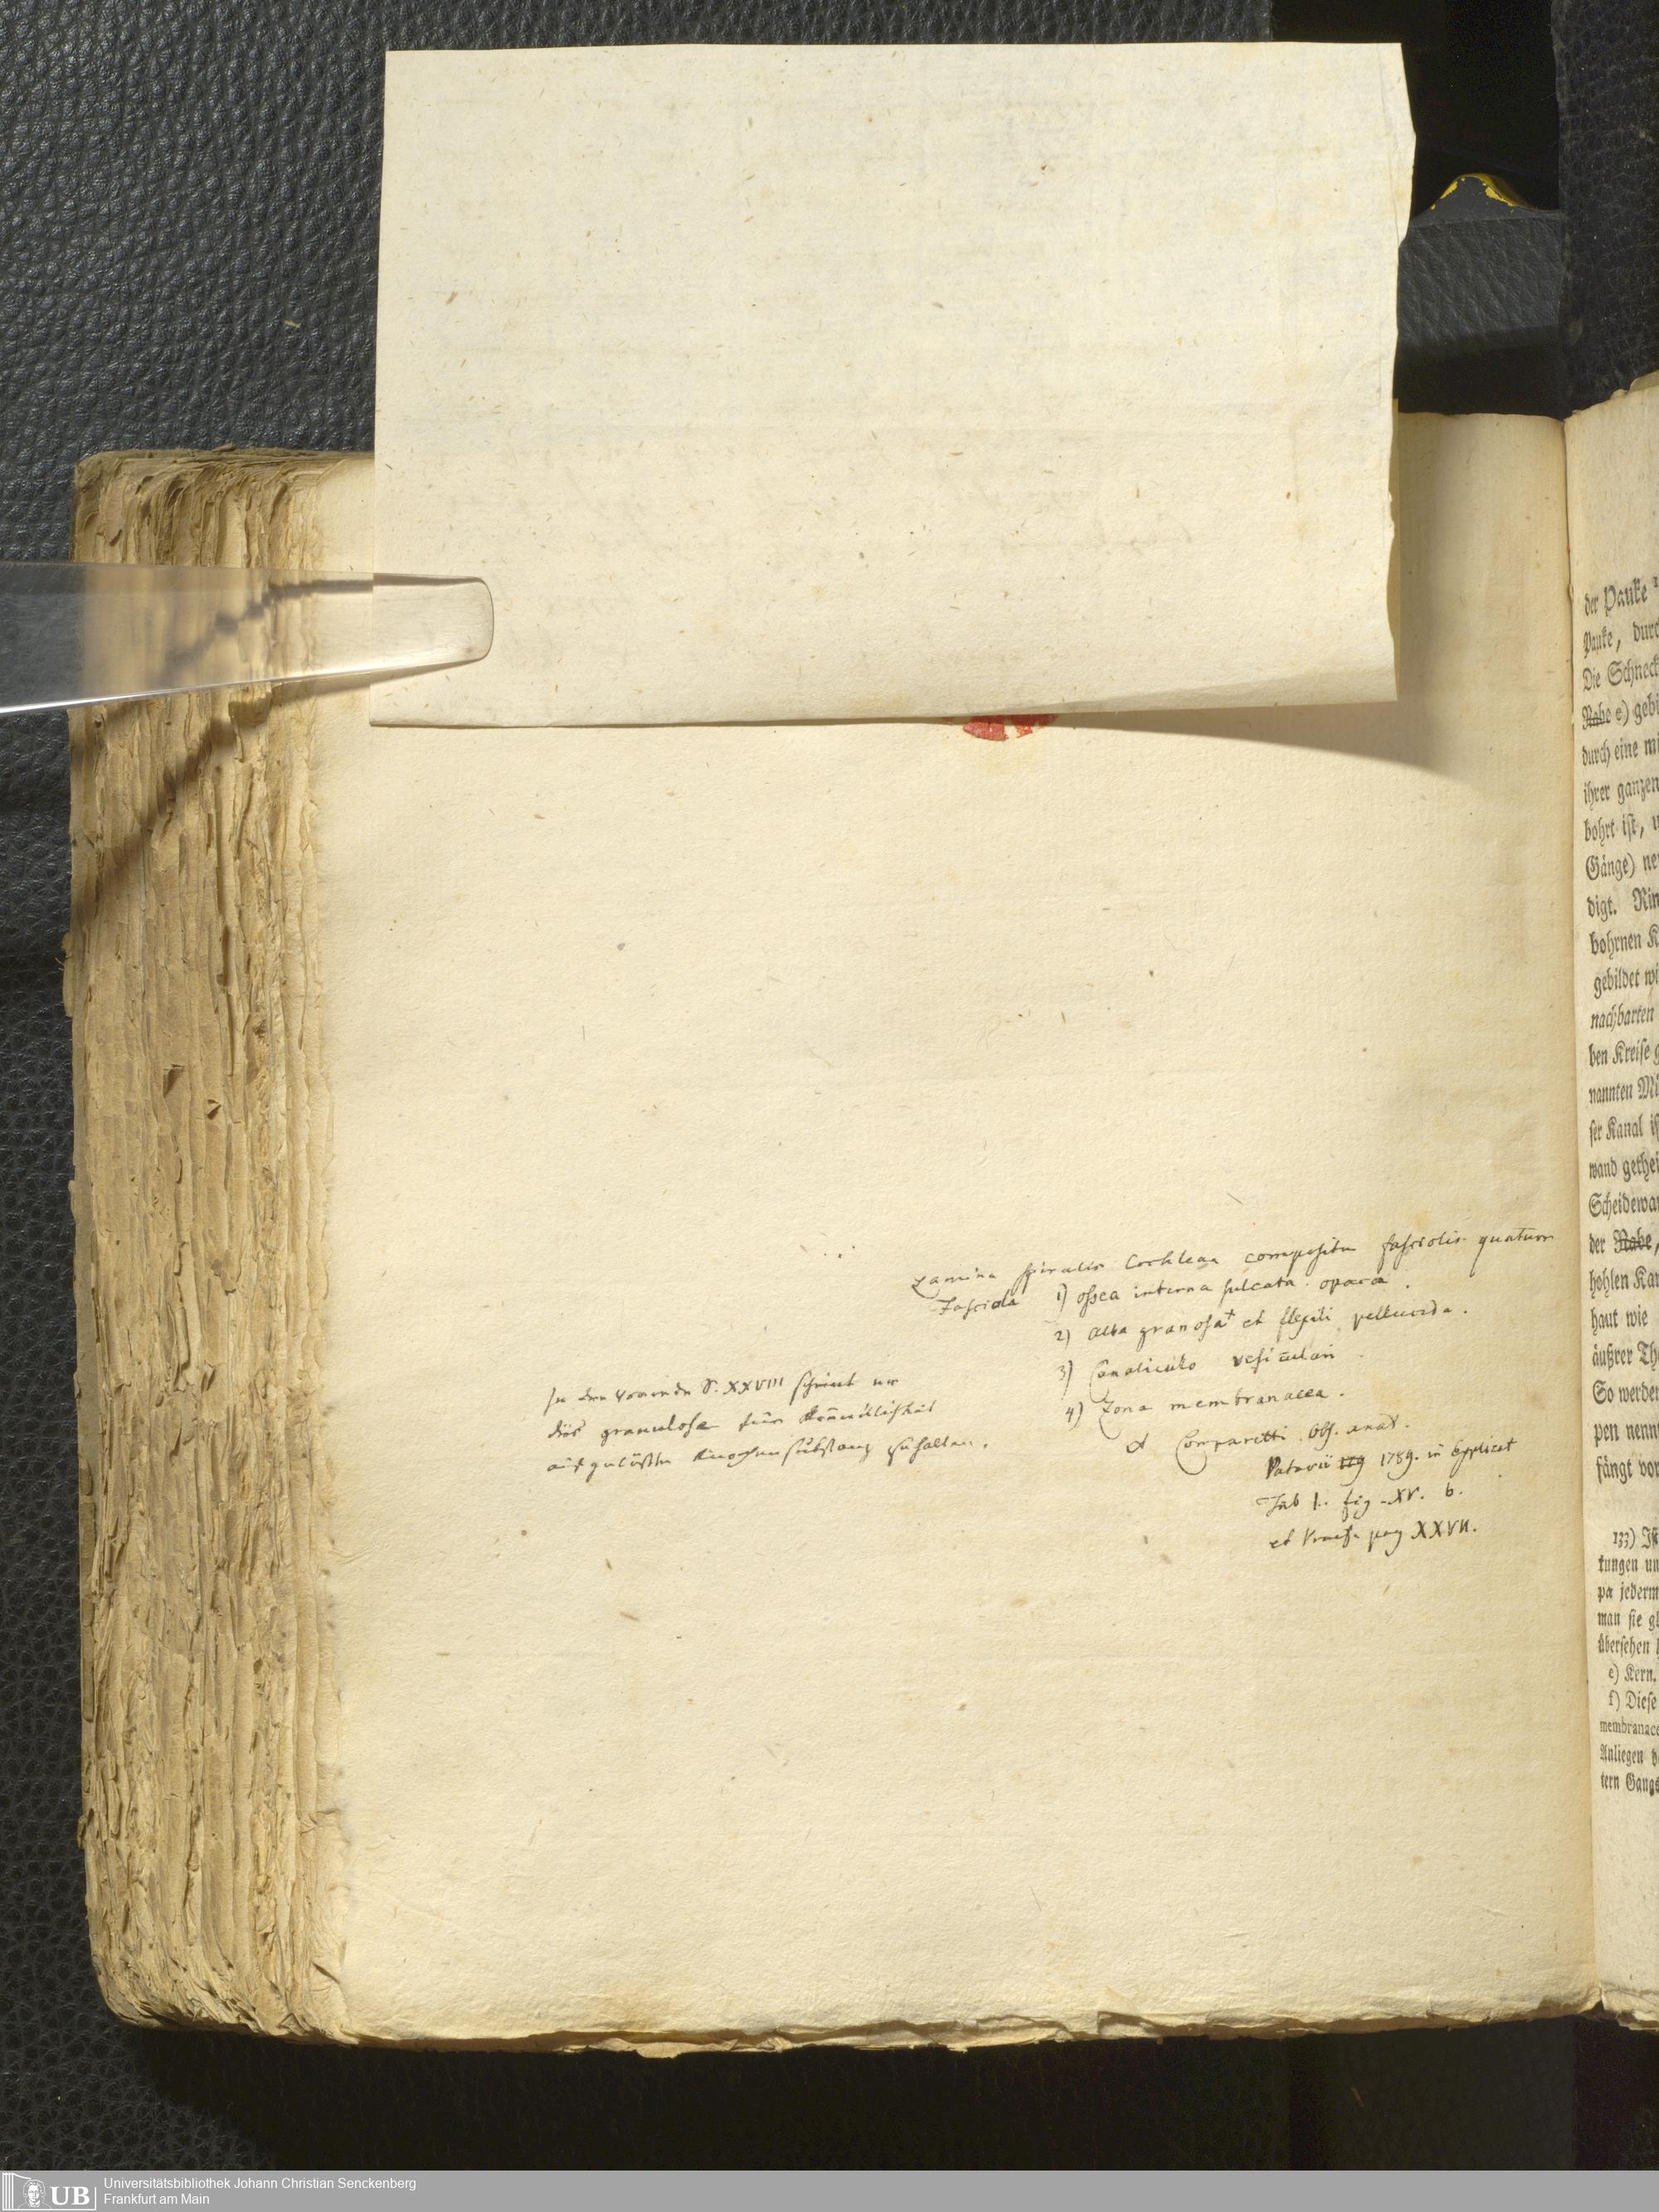 Lamina spiralis Cochleae composita fasciolis quatuor
Fasciola 1) ossea interna sulcata. opaca.
2) alba granosa+ et flexili pellucida.
3) Canaliculo vesiculari
4) Zona membranacea.
Comparetti Obs. anat.
Patavii 1789. in Explicat
Tab 1. fig. XV. b.
et Praef. pag XXVII.
In der Vorrede S. XXVIII scheint er
dies granulosa für
aufgelößte Knochensubstanz zu halten.
der Pauke
Pauke, durc
Die Schneck
Nabe e) gebi
durch eine mi
ihrer ganzen
bohrt ist, u
Gänge) ne
digt. Rin
bohrnen K
gebildet wi
nachbarten
ben Kreise g
nannten Mi
ser Kanal is
wand gethei
Scheidewa
der Nabe,
hohlen Kan
haut wie
äußrer Th
So werden
pen nenn
fängt vor
133) Ist
tungen un
pa jederm
man sie gl
übersehen h
e) Kern.
f) Diese
membranace
Anliegen d
tern Gangs
UB Universitätsbibliothek Johann Christian Senckenberg
Frankfurt am Main